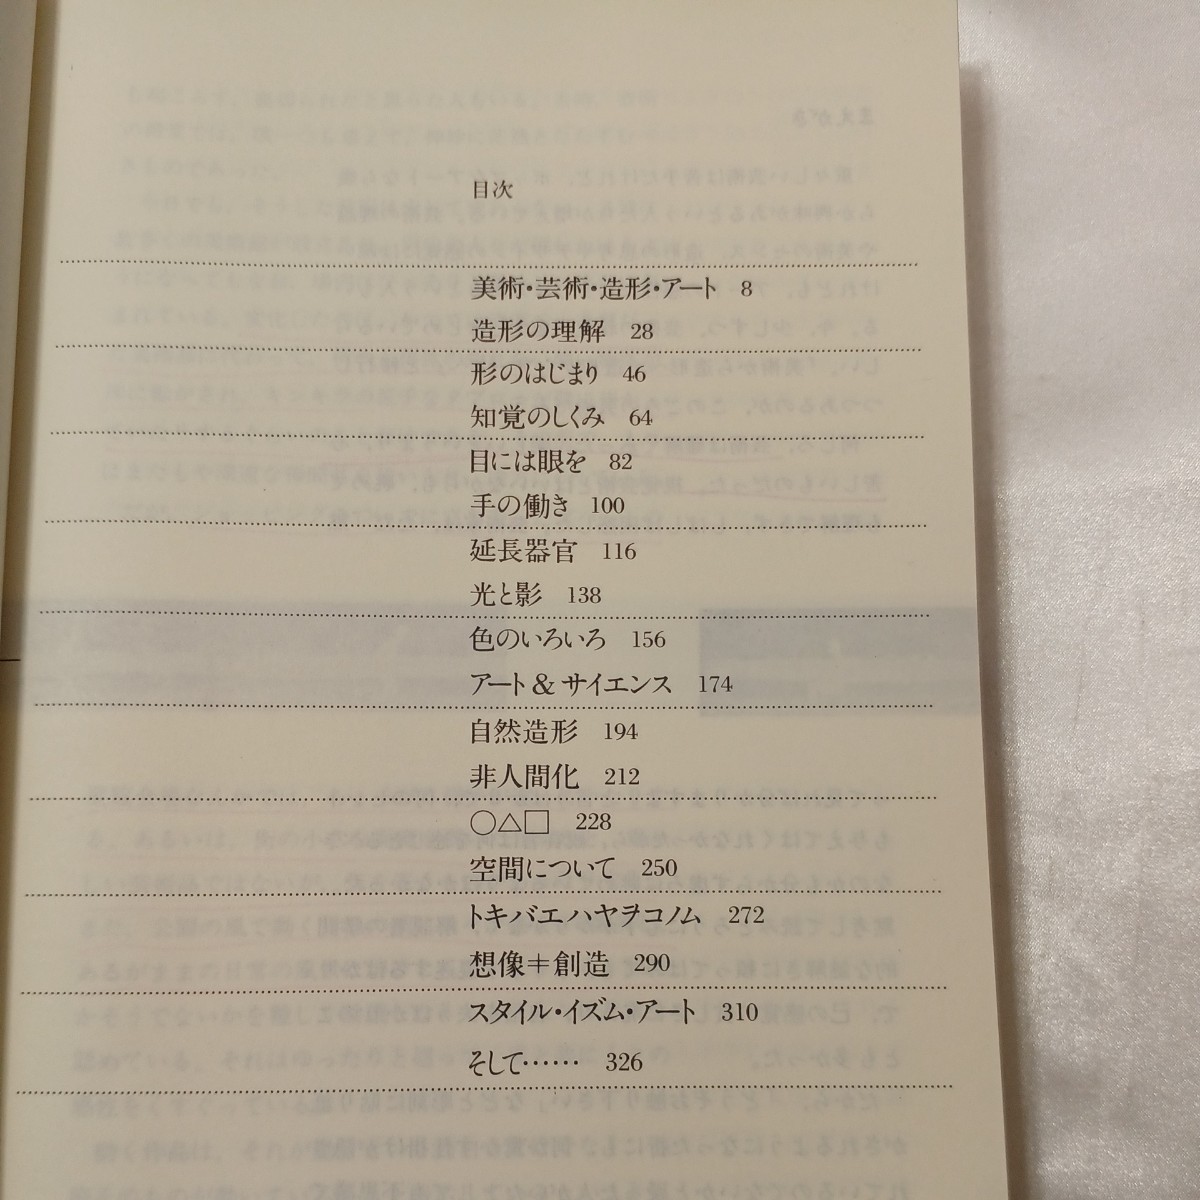 目次
美術・芸術・造形・アート 8
造形の理解 28
形のはじまり 46
知覚のしくみ 64
目には眼を 82
手の働き 100
延長器官 116
光と影 138
色のいろいろ 156
アート&サイエンス 174
自然造形 194
非人間化 212
○△□ 228
空間について 250
トキバエハヤヲコノム 272
想像＋創造 290
スタイル・イズム・アート 310
そして…… 326